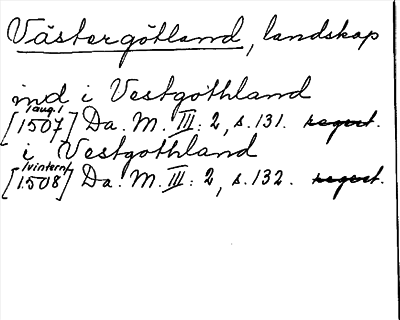 Västergötland, landskap
ind i Vestgothland
[1507 /aug./] Da. M. III: 2, s. 131. regest.
i Vestgothland
[1508 /vintern/] Da. M. III: 2, s. 132. regest.